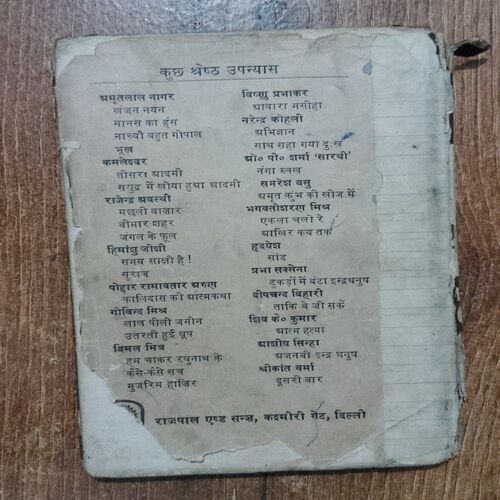 कुछ श्रेष्ठ उपन्यास
अमृतलाल नागर
खंजन नयन
मानस का हंस
नाच्यौ बहुत गोपाल
भूख
कमलेश्वर
तीसरा आदमी
समुद्र में खोया हुआ आदमी
राजेन्द्र अवस्थी
मछली बाज़ार
बीमार शहर
जंगल के फूल
हिमांशु जोशी
समय साक्षी है !
सुराज
पोद्दार रामावतार अरुण
कालिदास की आत्मकथा
गोविन्द मिश्र
लाल पीली ज़मीन
उतरती हुई धूप
बिमल मित्र
हम चाकर रघुनाथ के
कैसे-कैसे सच
मुजरिम हाज़िर
विष्णु प्रभाकर
आवारा मसीहा
नरेन्द्र कोहली
अभिज्ञान
साथ सहा गया दुःख
ओ० पी० शर्मा 'सारथी'
नंगा रुक्ख
समरेश बसु
अमृत कुंभ की खोज में
भगवतीशरण मिश्र
एकला चलो रे
आखिर कब तक
हृदयेश
सांड
प्रभा सक्सेना
टुकड़ों में बंटा इन्द्रधनुष
दीपचन्द बिहारी
ताकि वे जी सकें
शिव के० कुमार
आत्म हत्या
आशीष सिन्हा
अजनबी इन्द्र धनुष
श्रीकांत वर्मा
दूसरी बार
राजपाल एण्ड सन्ज़, कश्मीरी गेट, दिल्ली